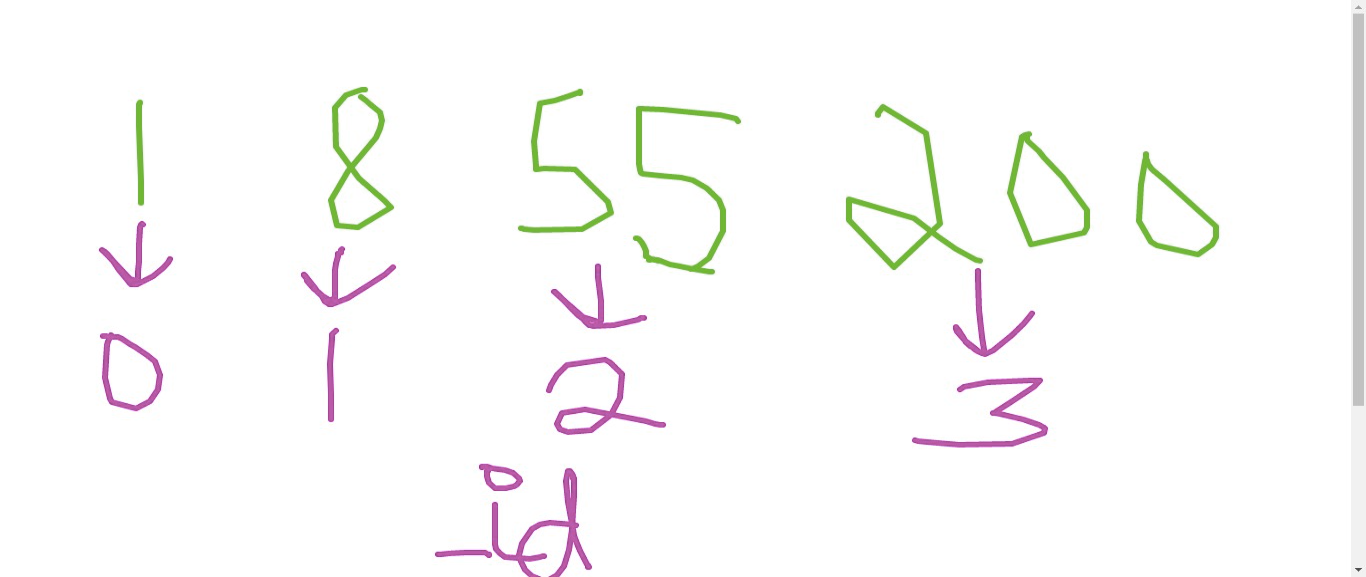 1 8 55 200
↓ ↓ ↓ ↓
0 1 2 3
_id